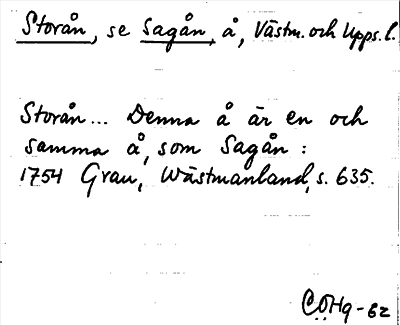 Storån, se Sagån, å, Västm. och Upps. l.
Storån... Denna å är en och
samma å, som Sagån:
1754 Grau, Wästmanland, s. 635.
CÖHg-62